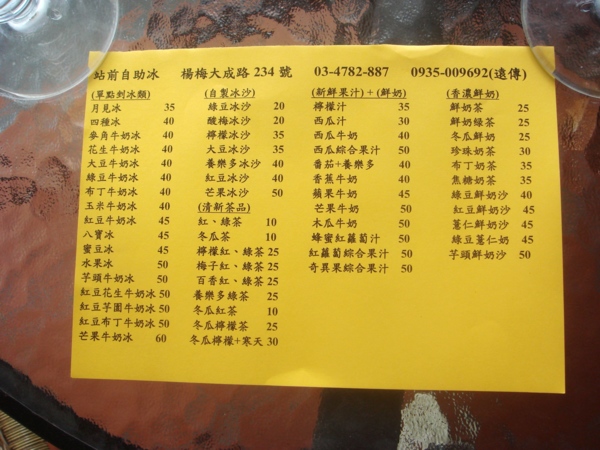 站前自助冰 楊梅大成路 234 號 03-4782-887 0935-009692(遠傳)
(單點刨冰類)
月見冰 35
四種冰 40
麥角牛奶冰 40
花生牛奶冰 40
大豆牛奶冰 40
綠豆牛奶冰 40
布丁牛奶冰 40
玉米牛奶冰 40
紅豆牛奶冰 45
八寶冰 45
蜜豆冰 45
水果冰 50
芋頭牛奶冰 50
紅豆花生牛奶冰 50
紅豆芋圓牛奶冰 50
紅豆布丁牛奶冰 50
芒果牛奶冰 60
(自製冰沙)
綠豆冰沙 20
酸梅冰沙 20
檸檬冰沙 35
大豆冰沙 35
養樂多冰沙 40
紅豆冰沙 40
芒果冰沙 50
(清新茶品)
紅、綠茶 10
冬瓜茶 10
檸檬紅、綠茶 25
梅子紅、綠茶 25
百香紅、綠茶 25
養樂多綠茶 25
冬瓜紅茶 10
冬瓜檸檬茶 25
冬瓜檸檬+寒天 30
(新鮮果汁)+(鮮奶)
檸檬汁 35
西瓜汁 30
西瓜牛奶 40
西瓜綜合果汁 50
番茄+養樂多 40
香蕉牛奶 40
蘋果牛奶 45
芒果牛奶 50
木瓜牛奶 50
蜂蜜紅蘿蔔汁 50
紅蘿蔔綜合果汁 50
奇異果綜合果汁 50
(香濃鮮奶)
鮮奶茶 25
鮮奶綠茶 25
冬瓜鮮奶 25
珍珠奶茶 30
布丁奶茶 35
焦糖奶茶 35
綠豆鮮奶沙 40
紅豆鮮奶沙 45
薏仁鮮奶沙 45
綠豆薏仁奶 45
芋頭鮮奶沙 50